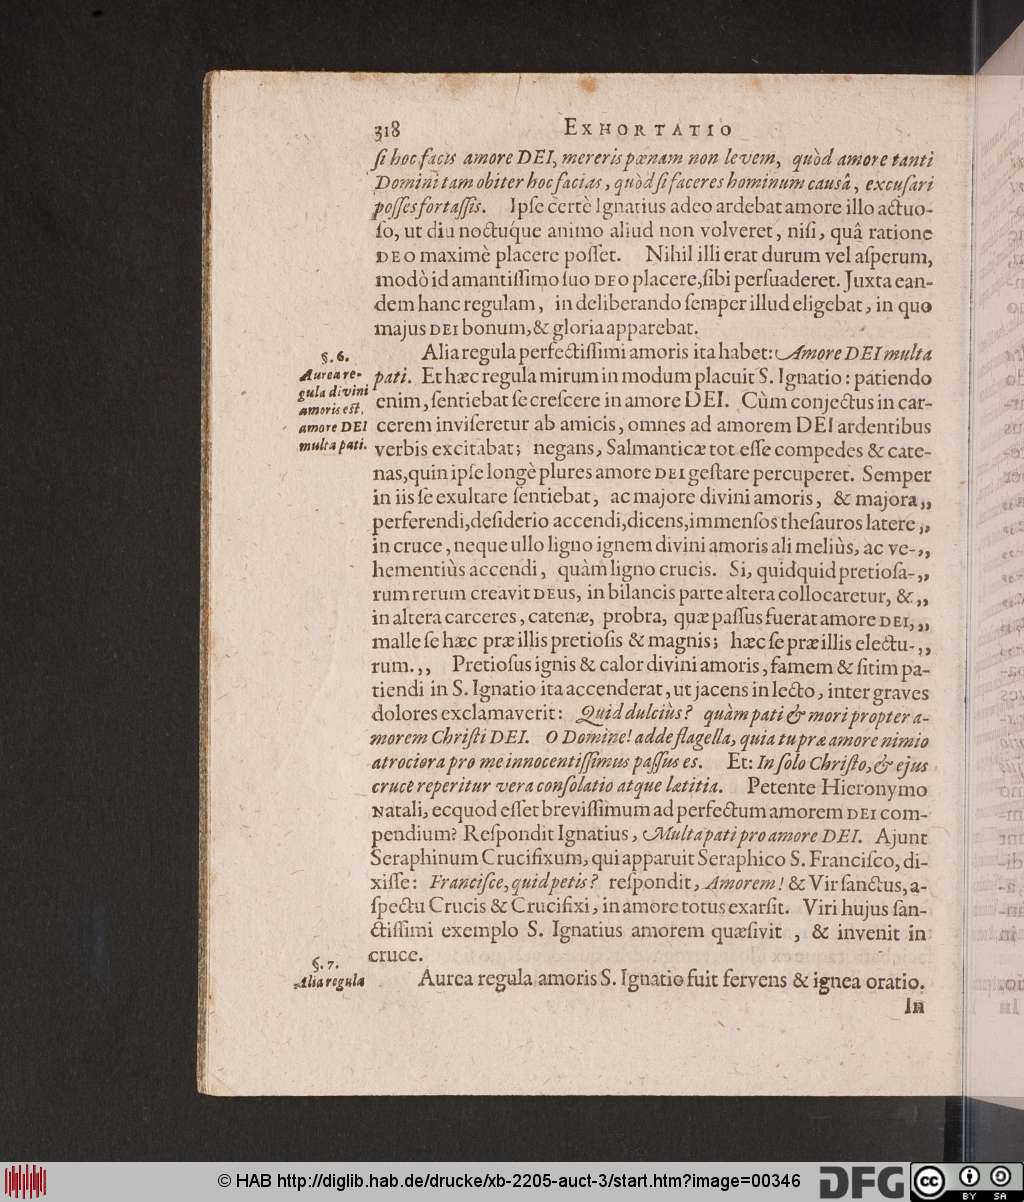 318 EXHORTATIO
ſi hoc facis amore DEI, mereris pœnam non levem, quòd amore tanti
Domini tam obiter hoc facias, quòd ſi faceres hominum causâ, excuſari
poſſes fortaſſis. Ipſe certè Ignatius adeo ardebat amore illo actuo-
ſo, ut diu noctuq́ue animo aliud non volveret, niſi, quâ ratione
DEO maximè placere poſſet. Nihil illi erat durum vel aſperum,
modò id amantiſſimo ſuo DEO placere, ſibi perſuaderet. Juxta ean-
dem hanc regulam, in deliberando ſemper illud eligebat, in quo
majus DEI bonum, & gloria apparebat.
§. 6.
Aurea re-
gula divini
amoris est,
amore DEI
multa pati.
Alia regula perfectiſſimi amoris ita habet: Amore DEI multa
pati. Et hæc regula mirum in modum placuit S. Ignatio: patiendo
enim, ſentiebat ſe creſcere in amore DEI. Cùm conjectus in car-
cerem inviſeretur ab amicis, omnes ad amorem DEI ardentibus
verbis excitabat; negans, Salmanticæ tot eſſe compedes & cate-
nas, quin ipſe longè plures amore DEI geſtare percuperet. Semper
in iis ſe exultare ſentiebat, ac majore divini amoris, & majora „
perferendi, deſiderio accendi, dicens, immenſos theſauros latere „
in cruce, neque ullo ligno ignem divini amoris ali meliùs, ac ve- „
hementiùs accendi, quàm ligno crucis. Si, quidquid pretioſa- „
rum rerum creavit DEUS, in bilancis parte altera collocaretur, & „
in altera carceres, catenæ, probra, quæ paſſus fuerat amore DEI, „
malle ſe hæc præ illis pretioſis & magnis; hæc ſe præ illis electu- „
rum. „ Pretioſus ignis & calor divini amoris, famem & ſitim pa-
tiendi in S. Ignatio ita accenderat, ut jacens in lecto, inter graves
dolores exclamaverit: Quid dulciùs? quàm pati & mori propter a-
morem Chriſti DEI. O Domine! adde flagella, quia tu præ amore nimio
atrociora pro me innocentiſſimus paſſus es. Et: In ſolo Chriſto, & ejus
cruce reperitur vera conſolatio atque lætitia. Petente Hieronymo
Natali, ecquod eſſet breviſſimum ad perfectum amorem DEI com-
pendium? Reſpondit Ignatius, Multa pati pro amore DEI. Ajunt
Seraphinum Crucifixum, qui apparuit Seraphico S. Franciſco, di-
xiſſe: Franciſce, quid petis? reſpondit, Amorem! & Vir ſanctus, a-
ſpectu Crucis & Crucifixi, in amore totus exarſit. Viri hujus ſan-
ctiſſimi exemplo S. Ignatius amorem quæſivit , & invenit in
cruce.
§. 7.
Alia regula
Aurea regula amoris S. Ignatio fuit fervens & ignea oratio.
In
© HAB http://diglib.hab.de/drucke/xb-2205-auct-3/start.htm?image=00346
DFG
cc
BY SA